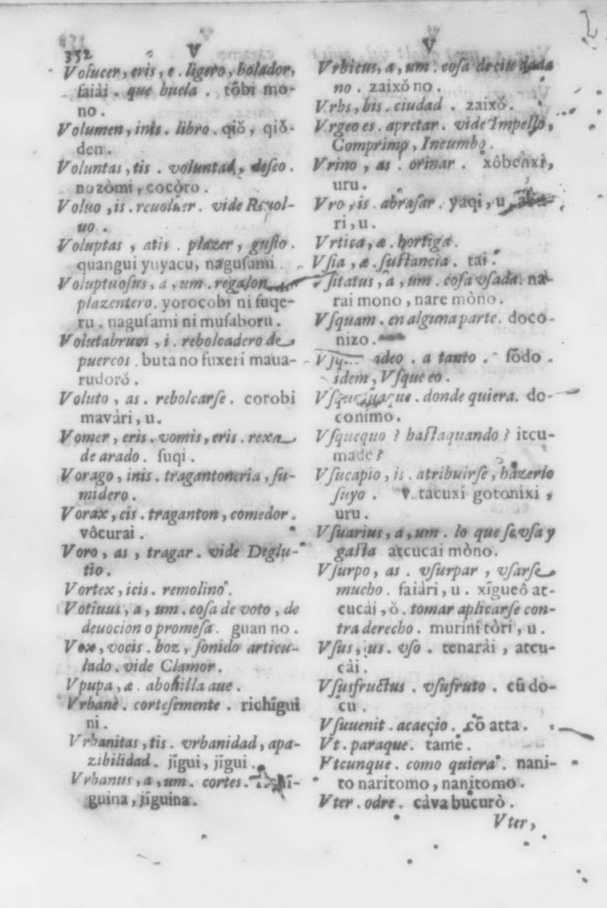 352
V
Volucer, eris, e. ligero, bolador,
faiài. que buela. tôbi mo-
no.
Volumen, inis. libro. qiŏ, qiŏ-
den.
Voluntas, tis. voluntad, deseo.
nozòmi, cocòro.
Voluo, is. reuoluer. vide Reuol-
uo.
Voluptas, atis. plazer, gusto.
quangui yuyacu, nagusami.
Voluptuosus, a, um. regalon,
plazentero. yorocobi ni fuqe-
ru. nagusami ni musaboru.
Volutabrum, i. rebolcadero de
puercos. buta no fuxeri maua-
rudorô.
Voluto, as. rebolcarse. corobi
mavàri, u.
Vomer, eris. vomis, eris. rexa
de arado. suqi.
Vorago, inis. tragantoneria, su-
midero.
Vorax, cis. traganton, comedor.
vôcurai.
Voro, as, tragar. vide Deglu-
tio.
Vortex, icis. remolino.
Votiuus, a, um. cosa de voto, de
deuocion o promesa. guan no.
Vox, vocis. boz, sonido articu-
lado. vide Clamor.
Vpupa, æ. abobilla aue.
Vrbane. cortesemente. richigui
ni.
Vrbanitas, tis. vrbanidad, apa-
zibilidad. jigui, jigui.
Vrbanus, a, um. cortes.
guina, jiguina.
V
Vrbicus, a, um. cosa de ciudada
no. zaixó no.
Vrbs, bis. ciudad. zaixó.
Vrgeo es. apretar. vide Impello,
Comprimo, Incumbo.
Vrino, as. orinar. xôbenxi,
uru.
Vro, is. abrasar. yaqi, u,
ri, u.
Vrtica, æ. hortiga.
Vsia, æ. sustancia. tai.
sitatus, a, um. cosa vsada. na-
rai mono, nare mòno.
Vsquam. en alguna parte. doco-
nizo.
ideo. a tanto. sôdo.
idem, Vsque eo.
donde quiera. do-
conimo.
Vsquequo? hastaquando? itcu-
made?
Vsucapio, is. atribuirse, hazerlo
suyo. v. tacuxi gotonixi,
uru.
Vsuarius, a, um. lo que se vsa y
gasta atcucai mòno.
Vsurpo, as. vsurpar, vsarse
mucho. faiàri, u. xigueô at-
cucài, ò. tomar aplicarse con-
tra derecho. murini tòri, u.
Vsus, us. vso. tenarài, atcu-
cài.
Vsusfructus. vsufruto. cũ do-
cu.
Vsuuenit. acaeçio. cô atta.
Vt. paraque. tamè.
Vtcunque. como quiera. nani-
to naritomo, nanitomo.
Vter. odre. càva bucurò.
Vter,